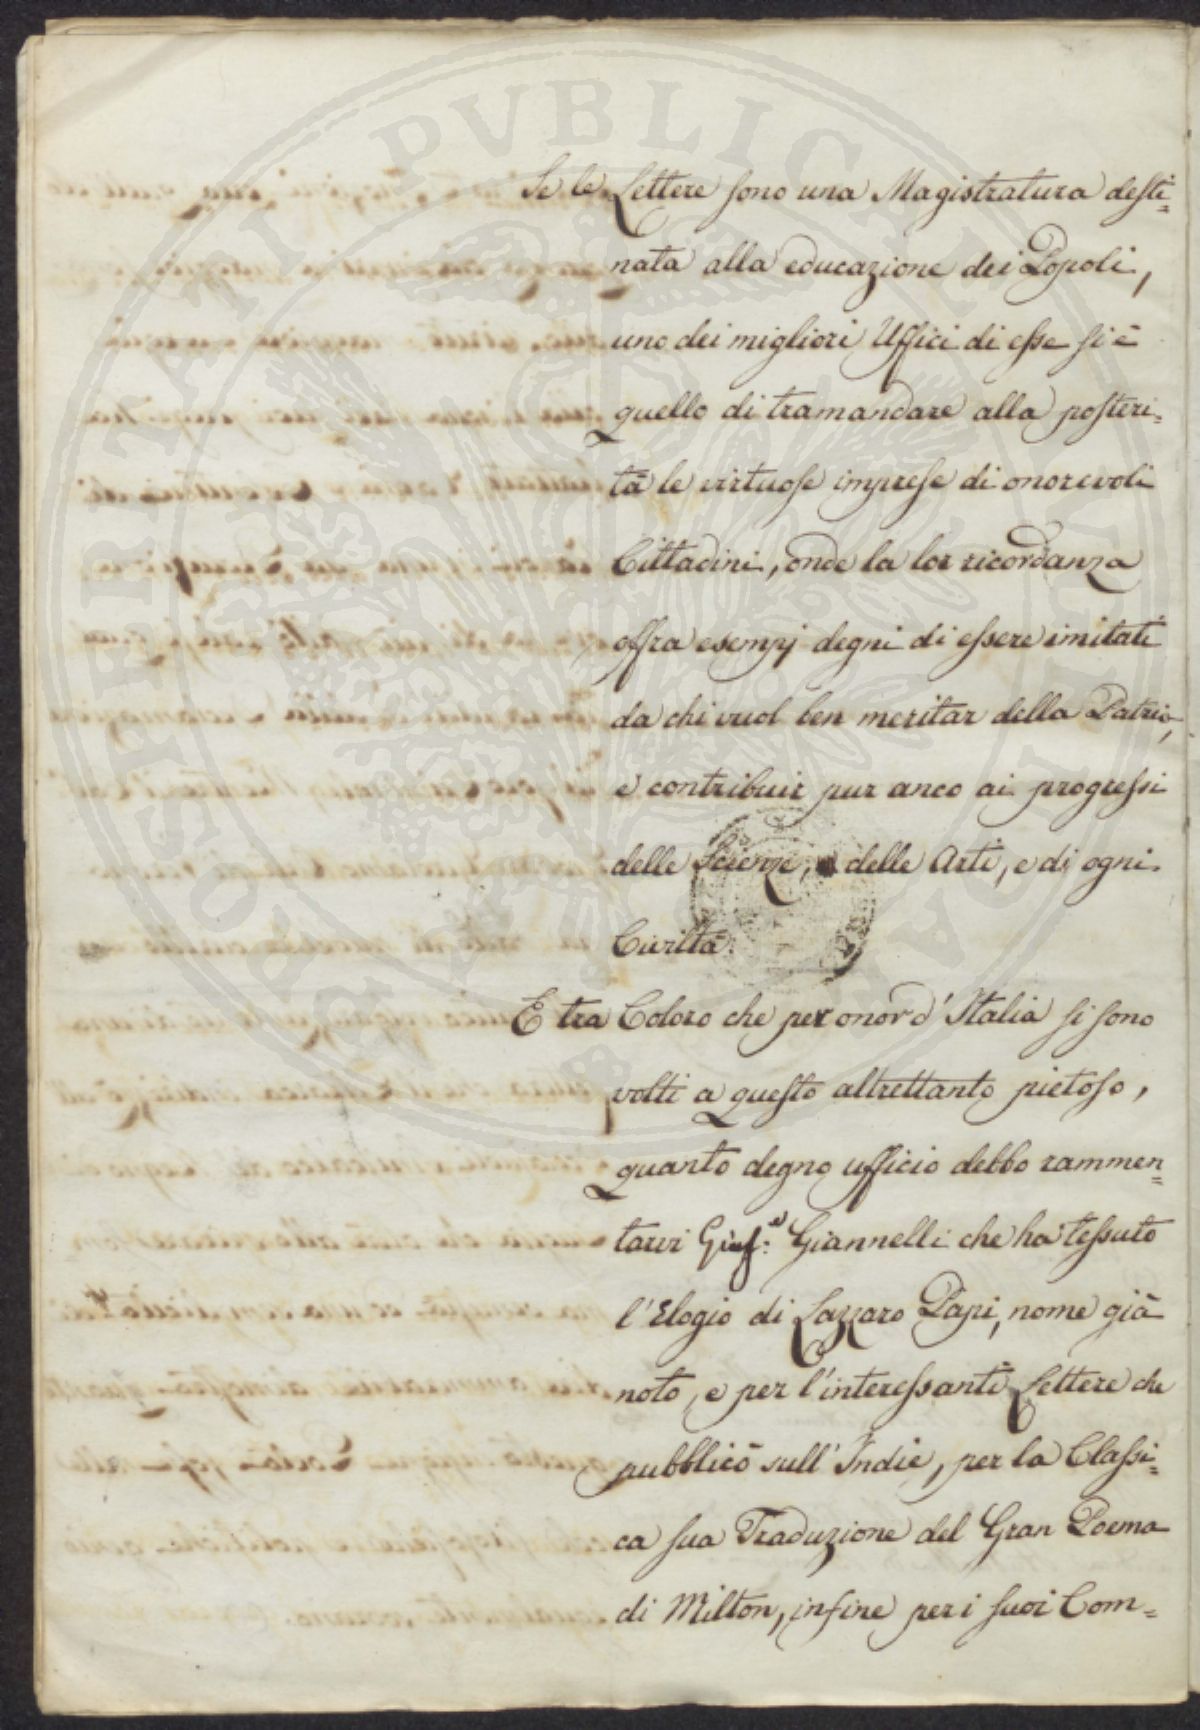 Se le Lettere sono una Magistratura desti=
nata alla educazione dei Popoli,
uno dei migliori Uffici di esse si è
quello di tramandare alla posteri=
tà le virtuose imprese di onorevoli
Cittadini, onde la lor ricordanza
offra esempj degni di essere imitati
da chi vuol ben meritar della Patria,
e contribuir pur anco ai progressi
delle Scienze, delle Arti, e di ogni
Civiltà.
E tra Coloro che per onor d'Italia si sono
volti a questo altrettanto pietoso,
quanto degno ufficio debbo rammen=
tarvi Gius:e Giannelli che ha tessuto
l'Elogio di Lazzaro Papi, nome già
noto, e per l'interessanti Lettere che
pubblicò sull'Indie, per la Classi=
ca sua Traduzione del Gran Poema
di Milton, infine per i suoi Com=